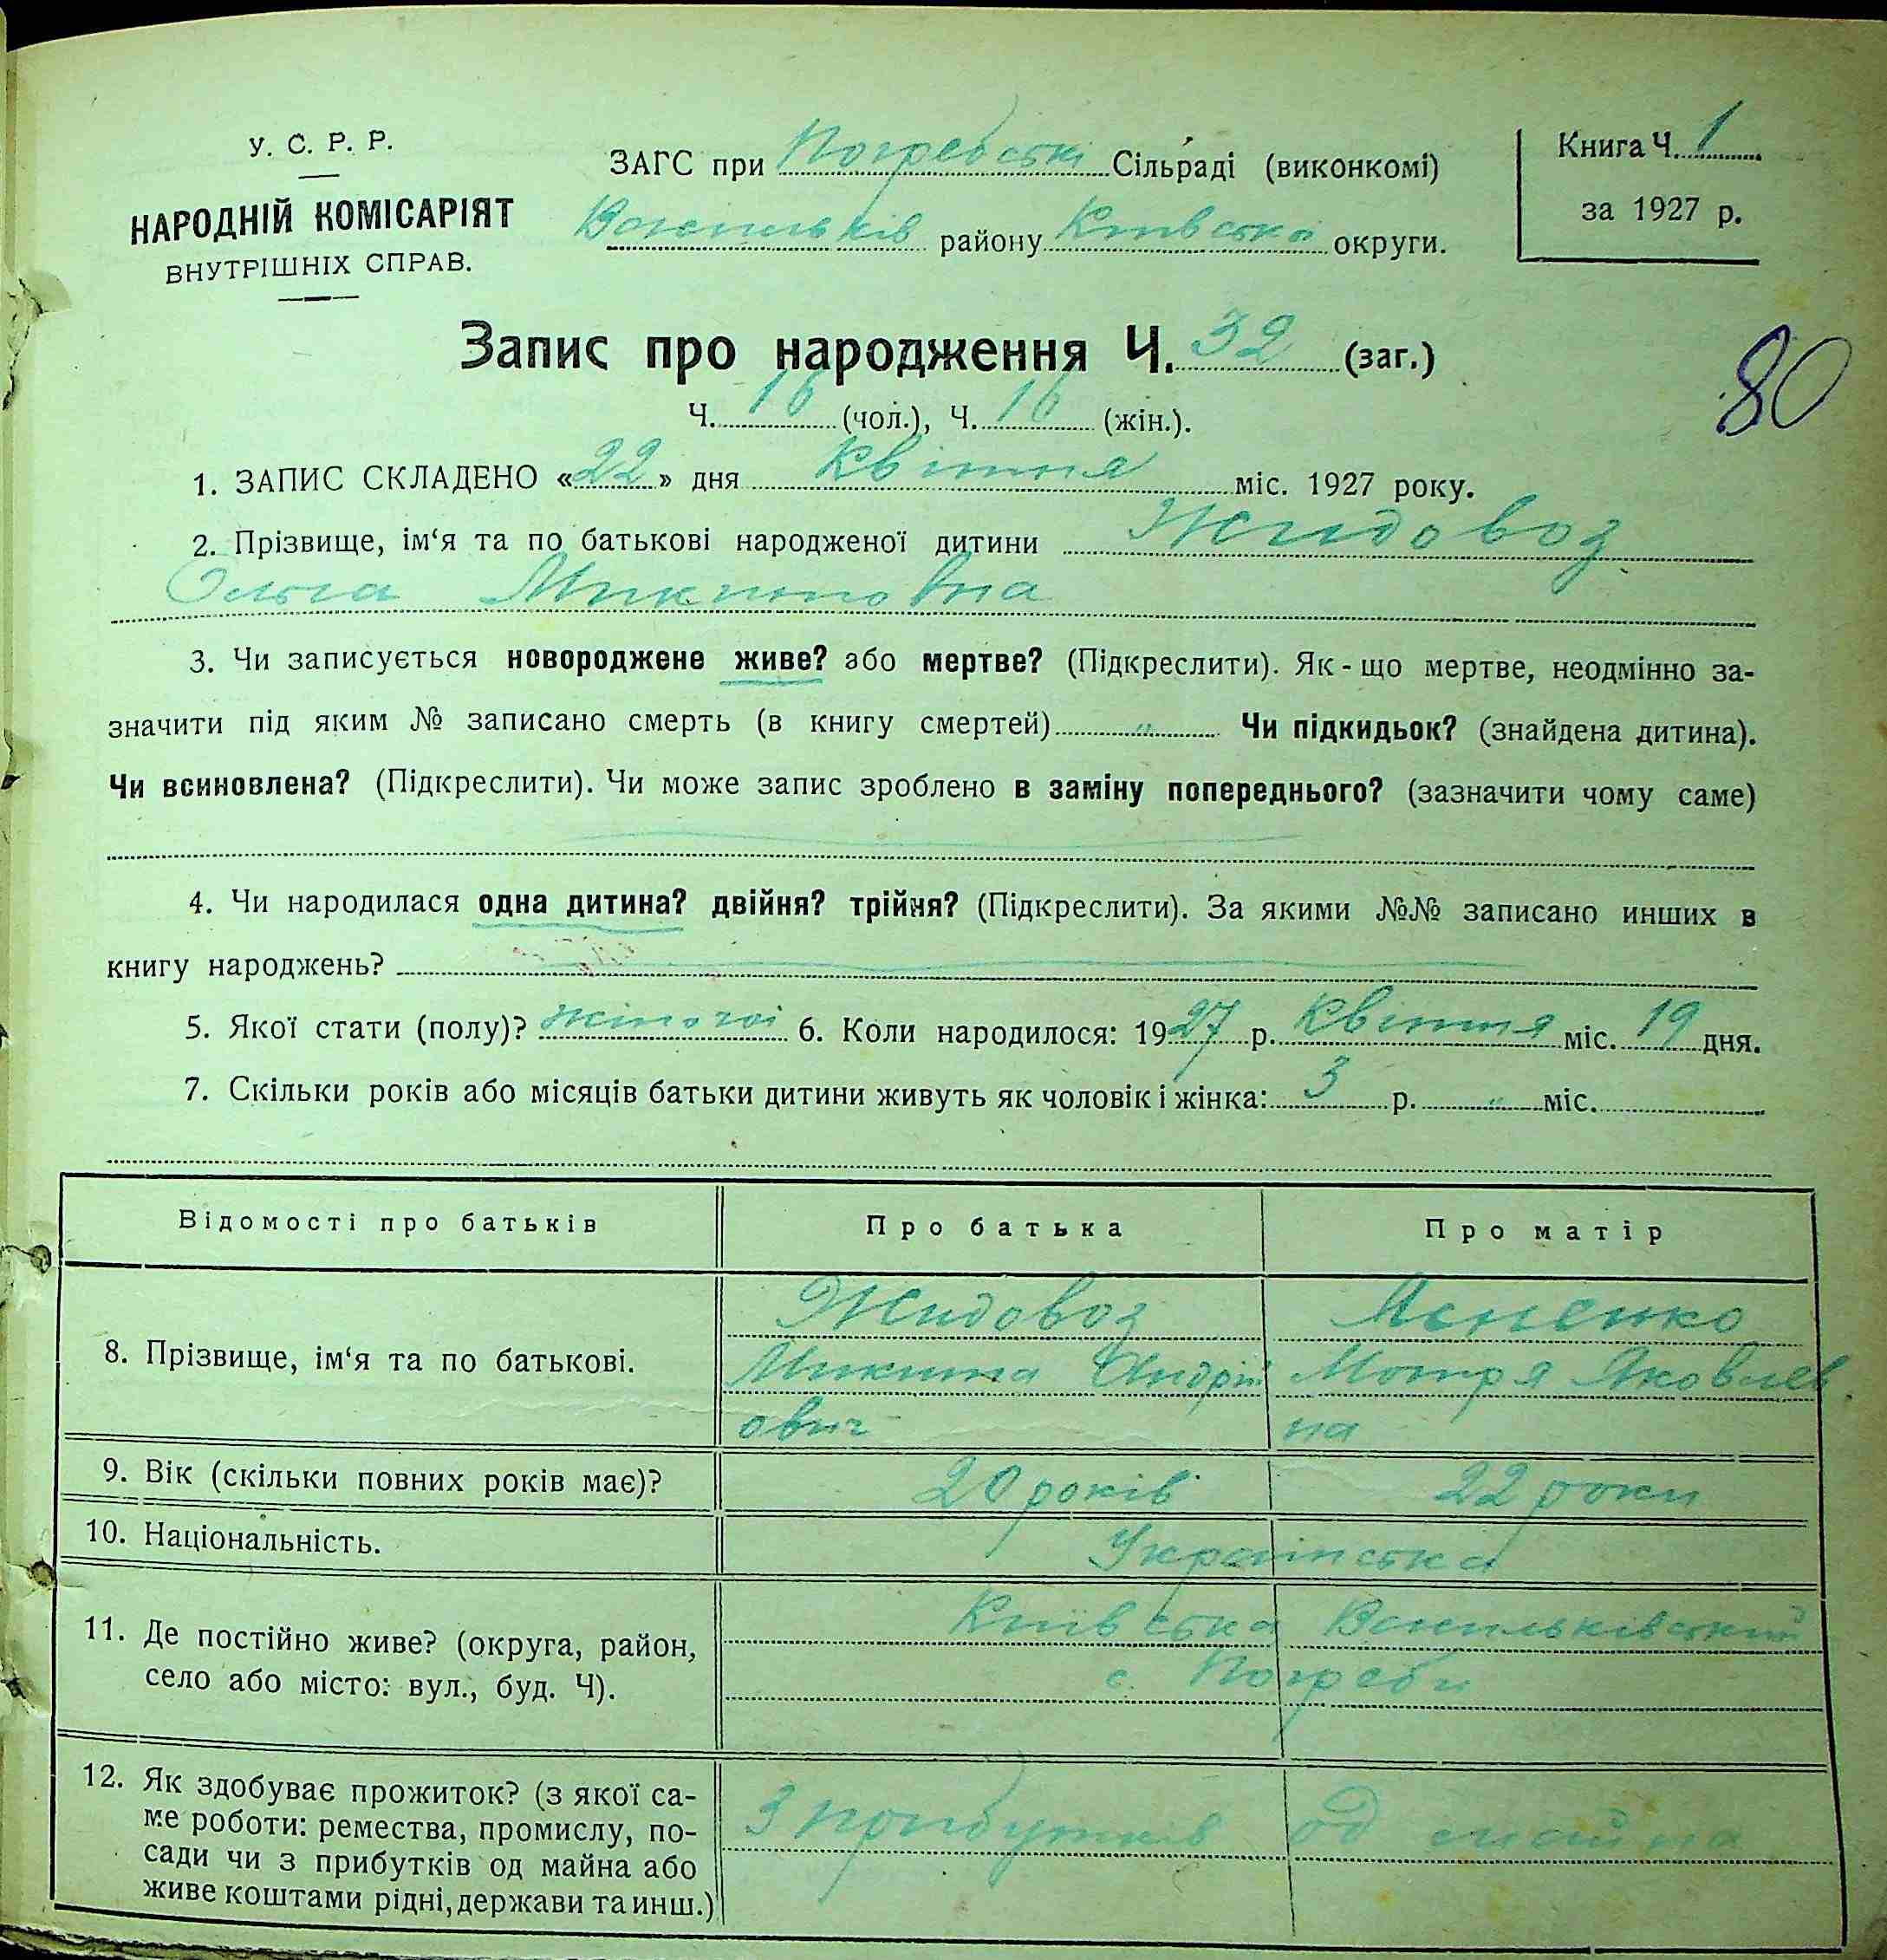 У. С. Р. Р.
НАРОДНІЙ КОМІСАРІЯТ
ВНУТРІШНІХ СПРАВ.
ЗАГС при Погребські Сільраді (виконкомі)
Васильків району Київська округи.
Книга Ч. 1
за 1927 р.
Запис про народження Ч. 32 (заг.)
80
Ч. 16 (чол.), Ч. 16 (жін.).
1. ЗАПИС СКЛАДЕНО «22» дня Квітня міс. 1927 року.
2. Прізвище, ім‘я та по батькові народженої дитини Жидовоз
Ольга Микитовна
3. Чи записується новороджене живе? або мертве? (Підкреслити). Як-що мертве, неодмінно за-
значити під яким № записано смерть (в книгу смертей) „ Чи підкидьок? (знайдена дитина).
Чи всиновлена? (Підкреслити). Чи може запис зроблено в заміну попереднього? (зазначити чому саме)
4. Чи народилася одна дитина? двійня? трійня? (Підкреслити). За якими №№ записано инших в
книгу народжень?
5. Якої стати (полу)? жіночої 6. Коли народилося: 1927 р. Квітня міс. 19 дня.
7. Скільки років або місяців батьки дитини живуть як чоловік і жінка: 3 р. „ міс.
Відомості про батьків Про батька Про матір
8. Прізвище, ім‘я та по батькові.
Жидовоз
Микита Андрії
ович
Ясненко
Мотря Яковлев
на
9. Вік (скільки повних років має)? 20 років 22 роки
10. Національність. Українська
11. Де постійно живе? (округа, район,
село або місто: вул., буд. Ч).
Київська Васильківський
с. Погреби
12. Як здобуває прожиток? (з якої са-
ме роботи: ремества, промислу, по-
сади чи з прибутків од майна або
живе коштами рідні, держави та инш.)
З прибутків од майна